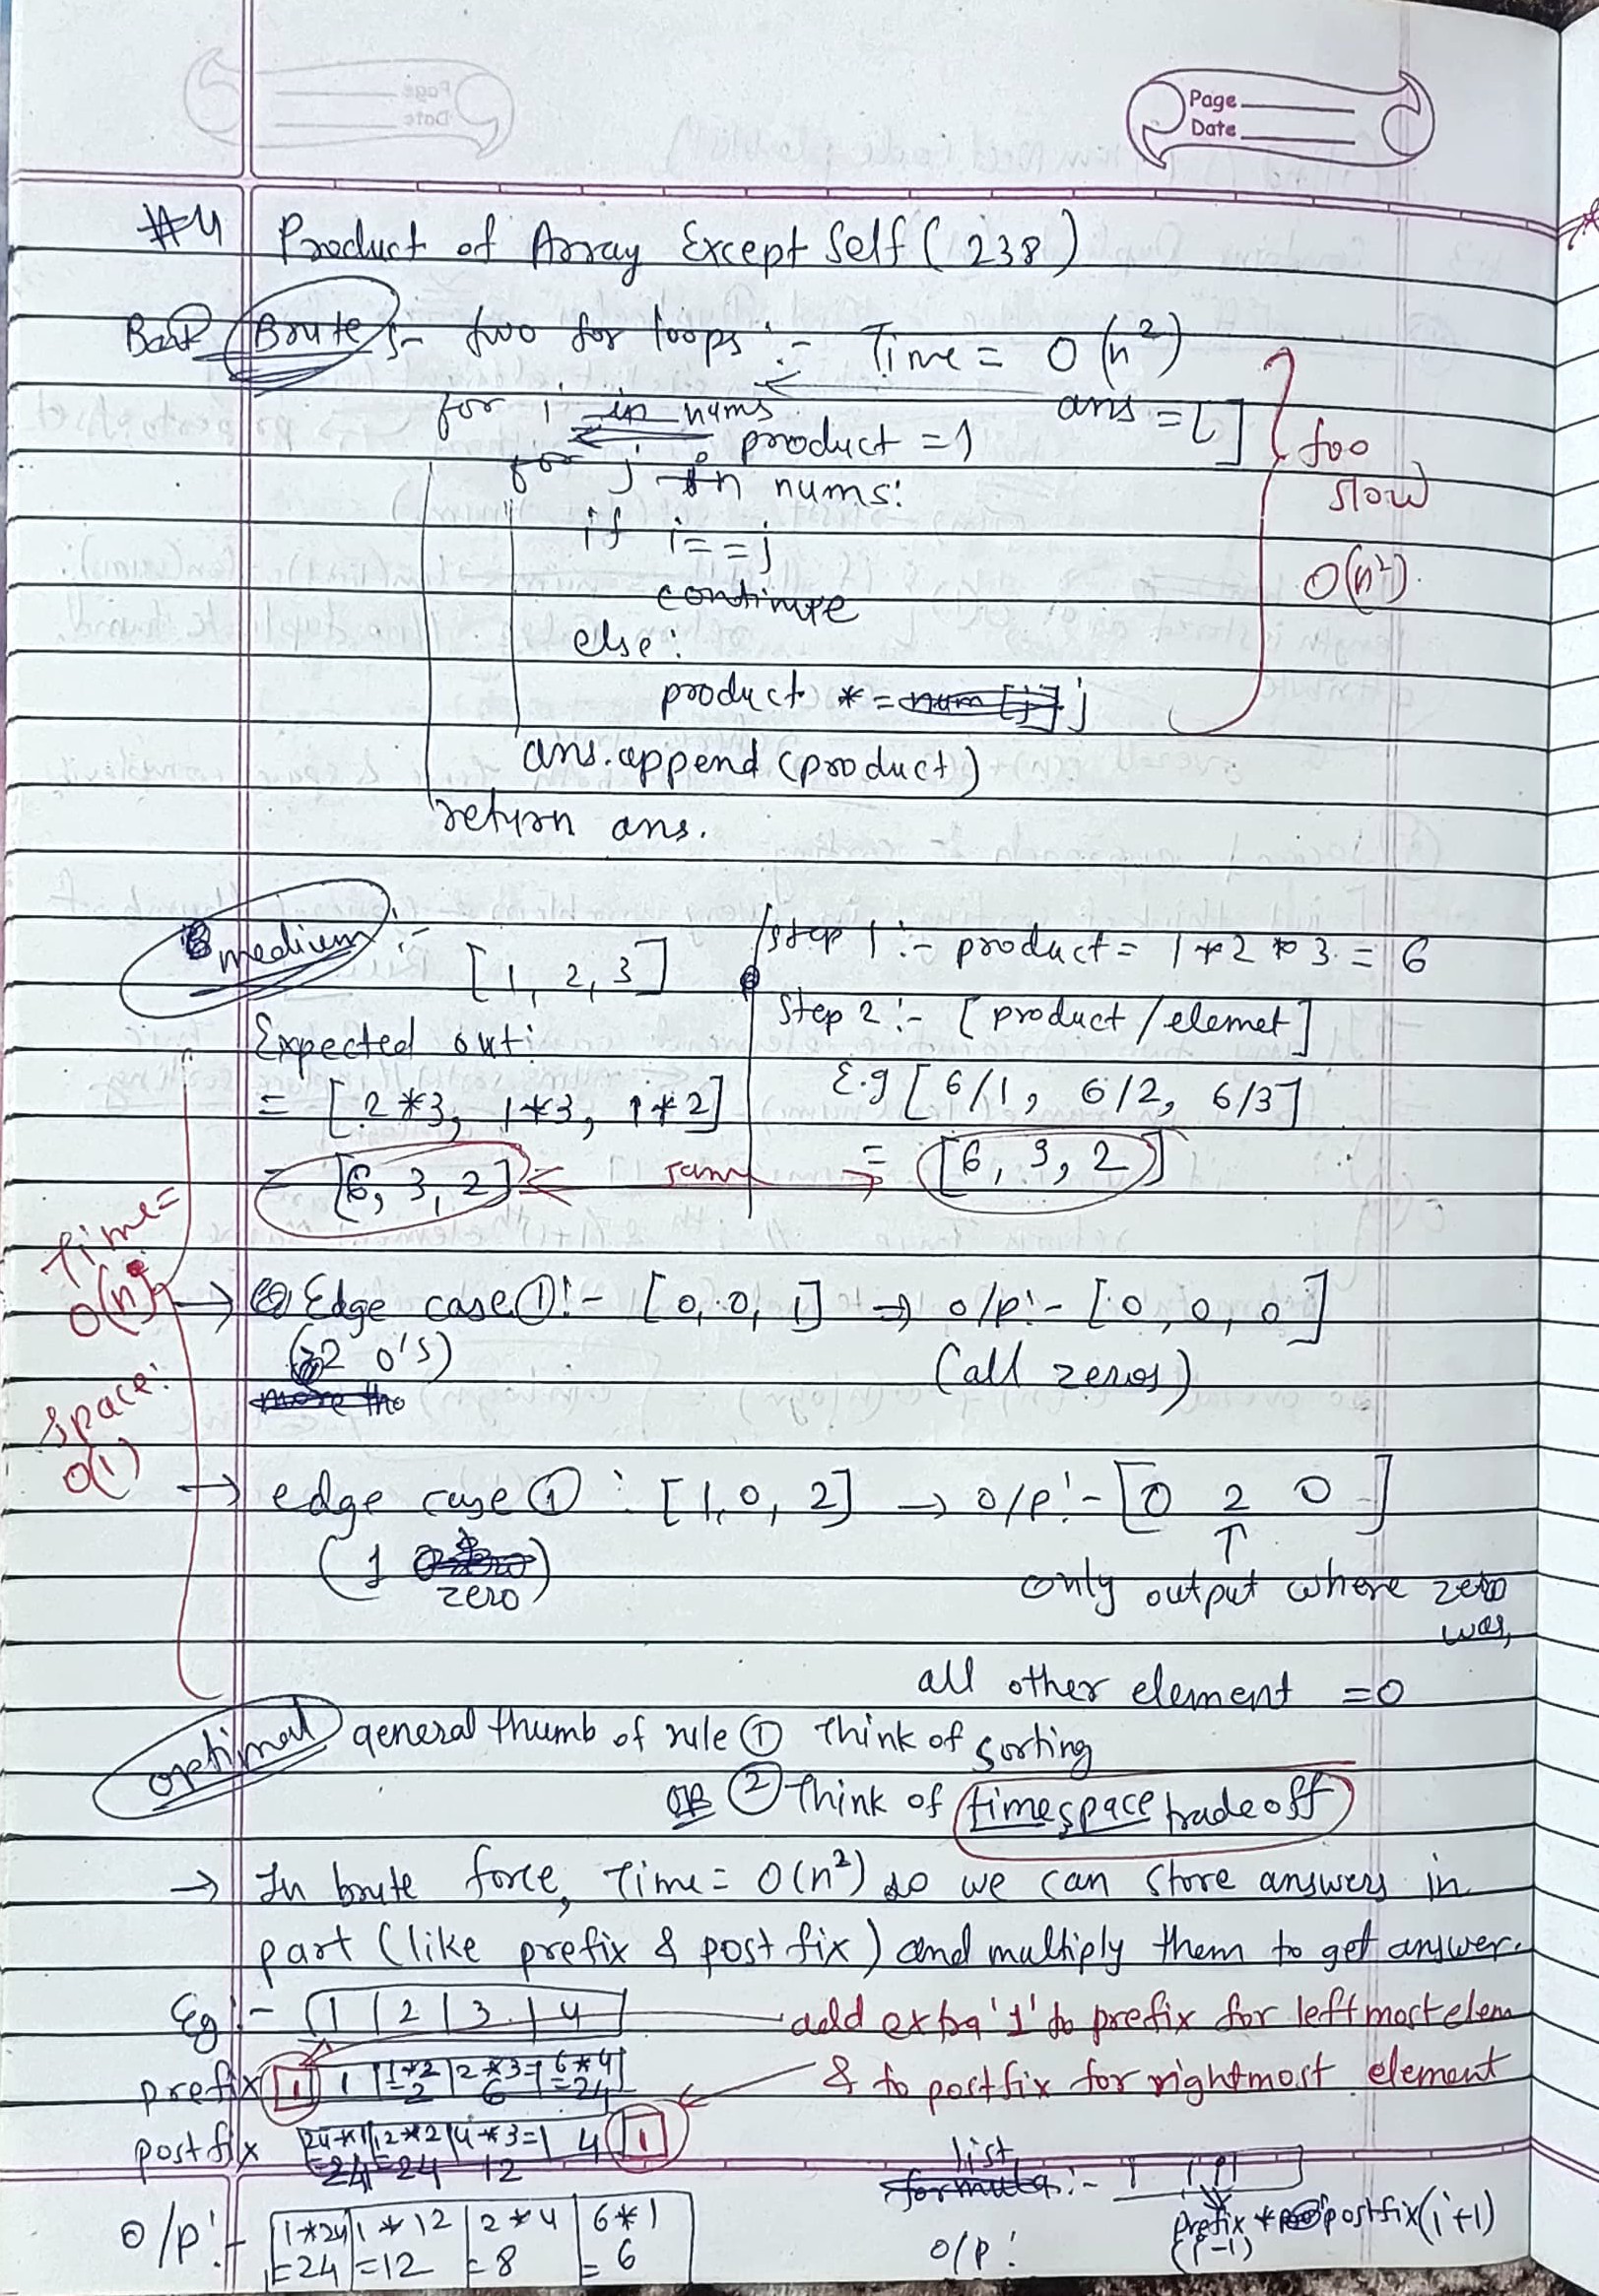 Page
Date
#4 Product of Array Except Self (238)
Brute :- two for loops :- Time = O(n²)
for i in nums ans = []
product = 1
for j in nums:
if i == j
continue
else:
product *= j
ans.append(product)
return ans.
too
slow
O(n²).
medium :- [1, 2, 3]
Expected out:
= [2*3, 1*3, 1*2]
= [6, 3, 2]
same
Step 1 :- product = 1*2*3 = 6
Step 2 :- [product/elemet]
E.g [6/1, 6/2, 6/3]
= [6, 3, 2]
Time =
O(n)
space:
O(1)
→ Edge case ① :- [0, 0, 1] → o/p :- [0, 0, 0]
(2 0's) (all zeros)
→ edge case ① : [1, 0, 2] → o/p :- [0 2 0]
(1 zero) ↑
only output where zero
was,
all other element = 0
optimal general thumb of rule ① Think of sorting
OR ② Think of time space tradeoff
→ In brute force, Time = O(n²) so we can store answers in
part (like prefix & post fix) and multiply them to get answer.
Eg :- 1 | 2 | 3 | 4
add extra '1' to prefix for leftmost elem
& to postfix for rightmost element
prefix 1 | 1 | 1*2 =2 | 2*3= 6 | 6*4 =24
postfix 24*1 =24 | 12*2 =24 | 4*3= 12 | 4 | 1
o/p :- 1*24 =24 | 1*12 =12 | 2*4 =8 | 6*1 =6
list :-
o/p : prefix (i-1) * postfix(i+1)